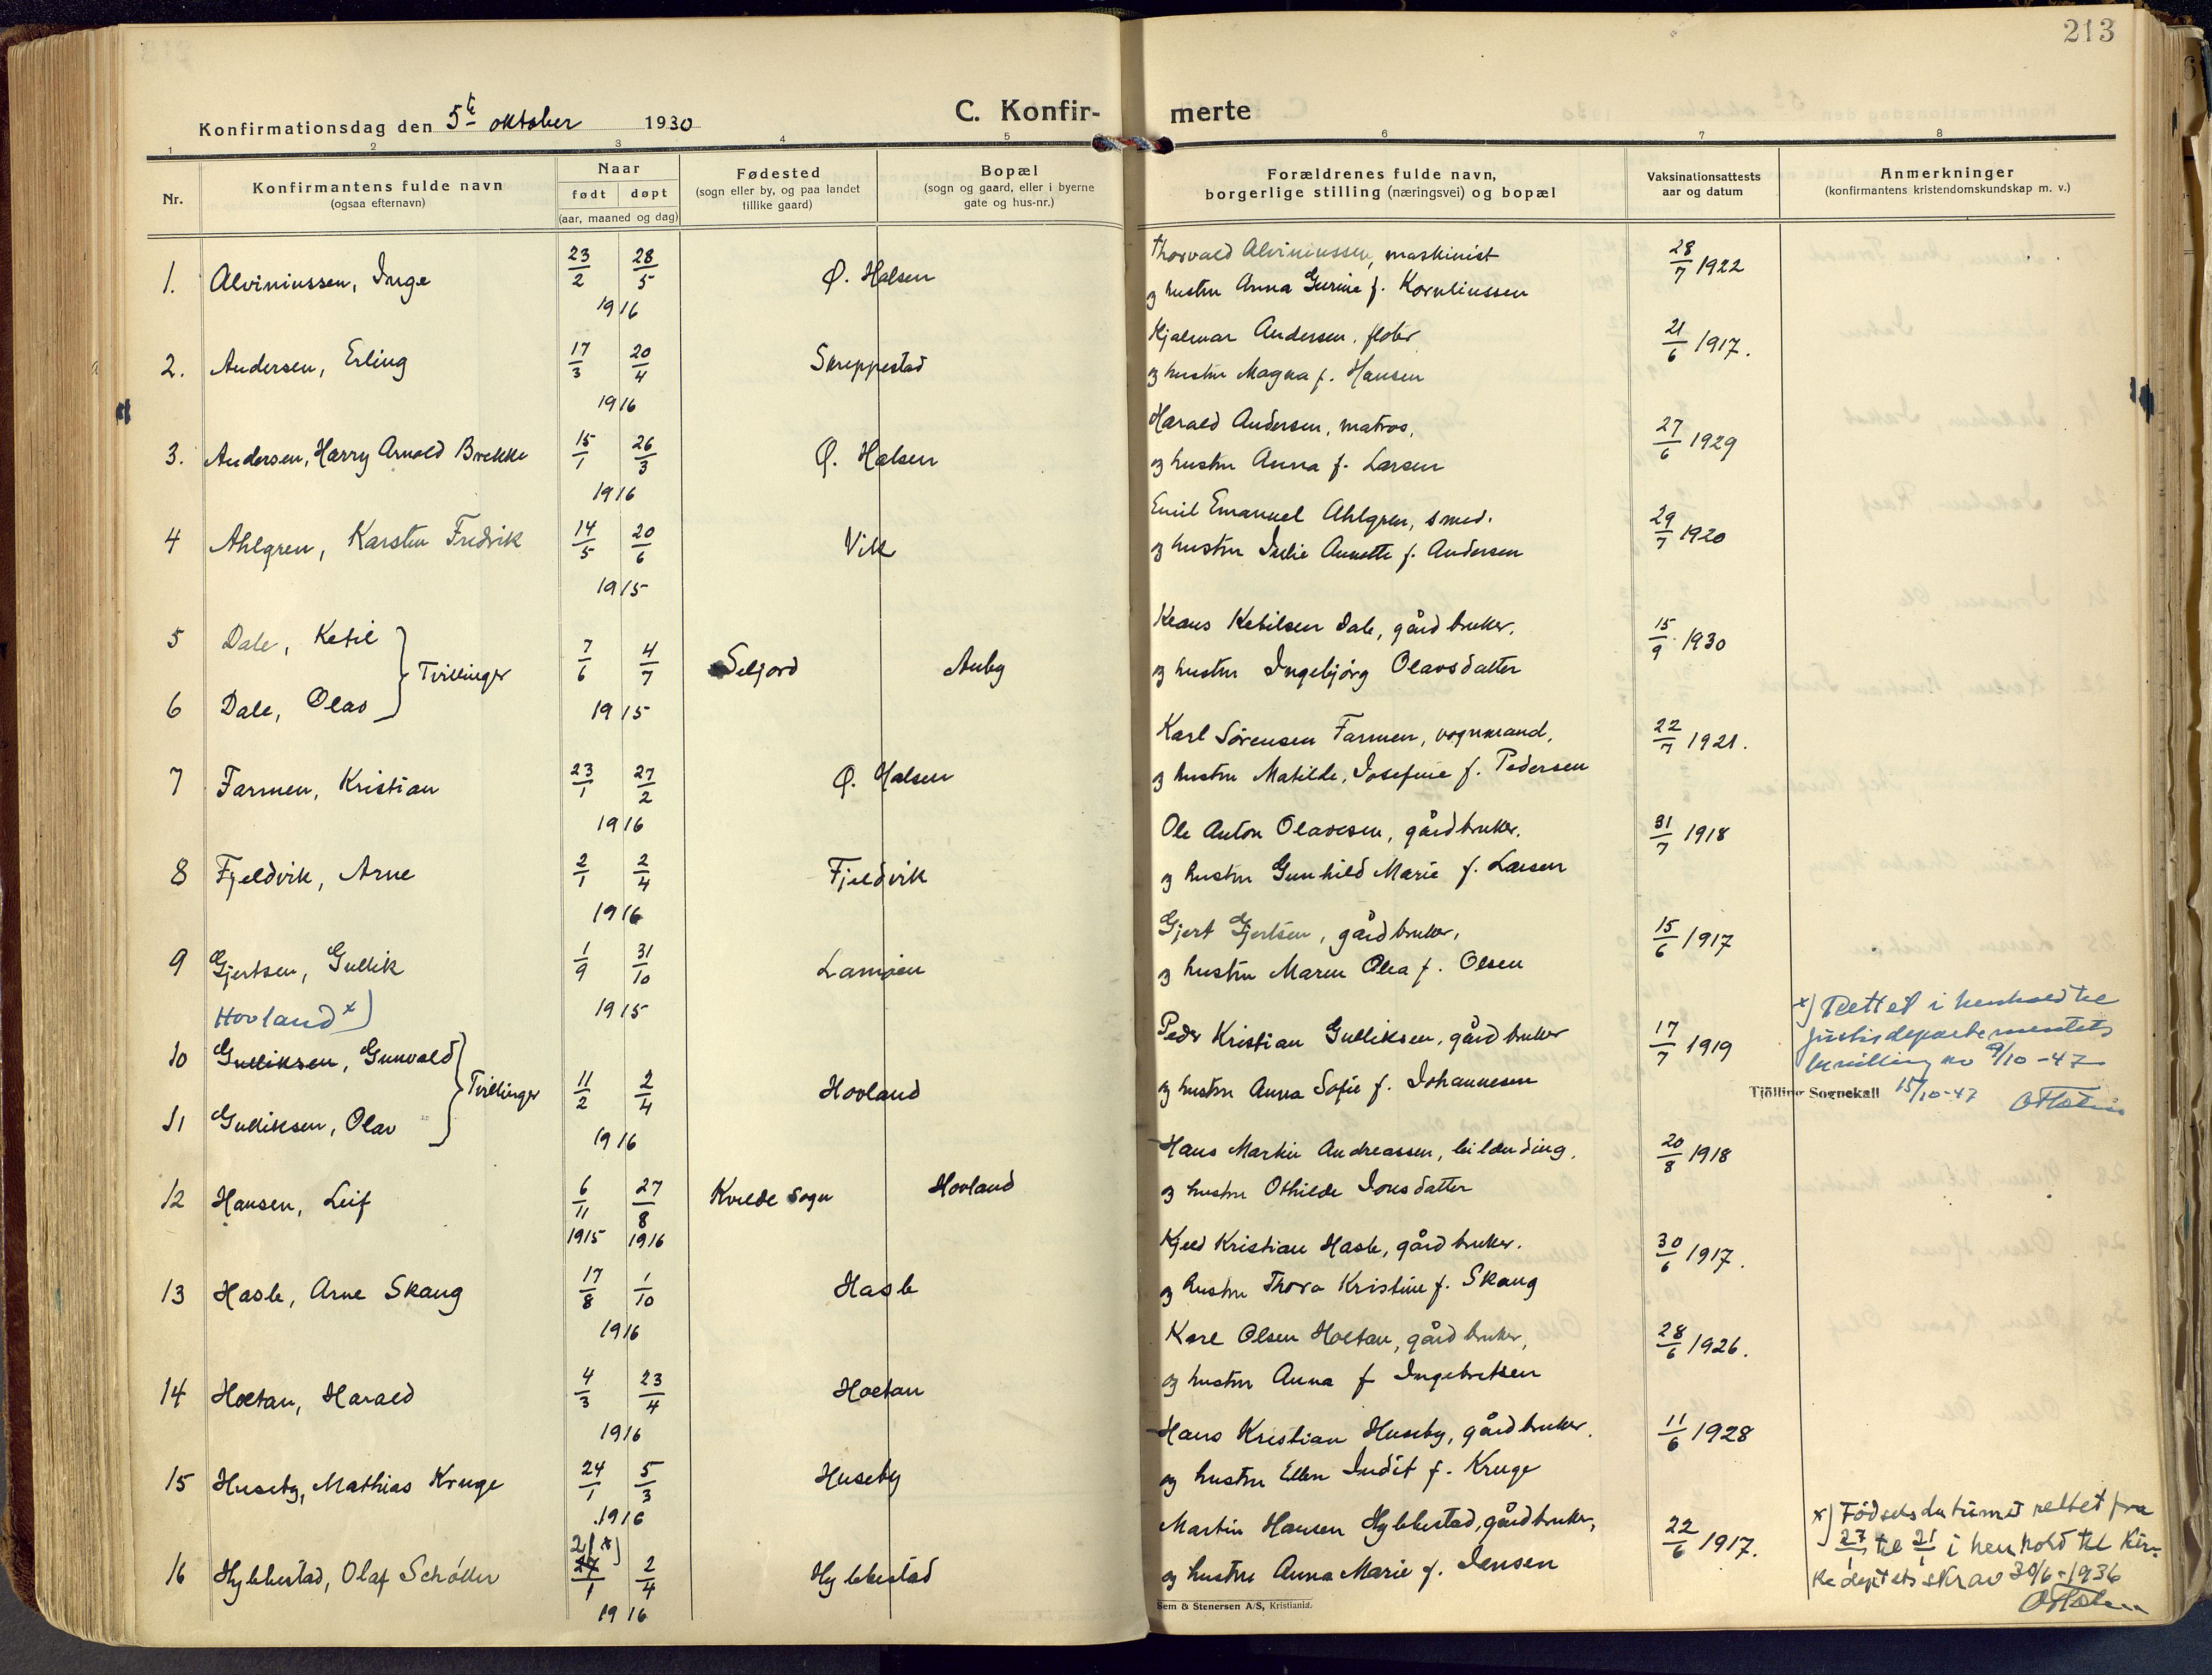 213
Konfirmationsdag den 5te oktober 1930
C. Konfir-
merte
1 2 3 4 5 6 7 8
Nr.
Konfirmantens fulde navn
(ogsaa efternavn)
Naar
født døpt
(aar, maaned og dag)
Fødested
(sogn eller by, og paa landet
tillike gaard)
Bopæl
(sogn og gaard, eller i byerne
gate og hus-nr.)
Forældrenes fulde navn,
borgerlige stilling (næringsvei) og bopæl
Vaksinationsattests
aar og datum
Anmerkninger
(konfirmantens kristendomskundskap m. v.)
1. Alviniussen, Inge 23/2 28/5 1916 Ø. Halsen
Thorvald Alviniussen, maskinist
og hustru Anna Gurine f. Kornliussen
28/7 1922
2. Andersen, Erling 17/3 20/4 1916 Skreppestad
Hjalmar Andersen, fløter
og hustru Magna f. Hansen
21/6 1917.
3. Andersen, Harry Arnold Brekke 15/1 26/3 1916 Ø. Halsen
Harald Andersen, matros,
og hustru Anna f. Larsen
27/6 1929
4 Ahlgren, Karsten Fredrik 14/5 20/6 1915 Vik
Emil Emanuel Ahlgren, smed.
og hustru Julie Annette f. Andersen
29/7 1920
5 Dale, Ketil
6 Dale, Olav
Tvillinger 7/6 4/7 1915 Seljord Auby
Klaus Ketilsen Dale, gårdbruker.
og hustru Ingebjørg Olavsdatter
15/9 1930
7 Farmen, Kristian 23/1 27/2 1916 Ø. Halsen
Karl Sørensen Farmen, vognmand,
og hustru Matilde, Josefine f. Pedersen
22/7 1921.
8 Fjeldvik, Arne 2/1 2/4 1916 Fjeldvik
Ole Anton Olavesen, gårdbruker.
og hustru Gunhild Marie f. Larsen
31/7 1918
9 Gjertsen, Gullik 1/9 31/10 1915 Lamøen
Gjert Gjertsen, gårdbruker,
og hustru Maren Olea f. Olsen
15/6 1917
Hovland x)
10 Gulliksen, Gunvald
11 Gulliksen, Olav
Tvillinger 11/2 2/4 1916 Hovland
Peder Kristian Gulliksen, gårdbruker
og hustru Anna Sofie f. Johannesen
17/7 1919
x) Rettet i henhold til
Justisdepartementets
bevilling av 9/10-47
Tjölling Sognekall 15/10-47
12 Hansen, Leif 6/11 1915 27/8 1916 Kvelde sogn Hovland
Hans Martin Andreassen, leilænding.
og hustru Othilde Jonsdatter
20/8 1918
13 Hasle, Arne Skaug 17/8 1/10 1916 Hasle
Kjeld Kristian Hasle, gårdbruker.
og hustru Thora Kristine f. Skaug
30/6 1917.
14 Holtan, Harald 4/3 23/4 1916 Holtan
Karl Olsen Holtan, gårdbruker,
og hustru Anna f Ingebretsen
28/6 1926.
15 Huseby, Mathias Kruge 24/1 5/3 1916 Huseby
Hans Kristian Huseby, gårdbruker.
og hustru Ellen Indit f. Kruge
11/6 1928
16 Hybbestad, Olaf Schøller 21 x) 27/1 2/4 1916 Hybbestad
Martin Hansen Hybbestad, gårdbruker,
og hustru Anna Marie f. Jensen
22/6 1917.
x) Fødselsdatumet rettet fra
27/1 til 21/1 i henhold til Kir-
kedeptets skr av 30/6-1936
Sem & Stenersen A/S, Kristiania.